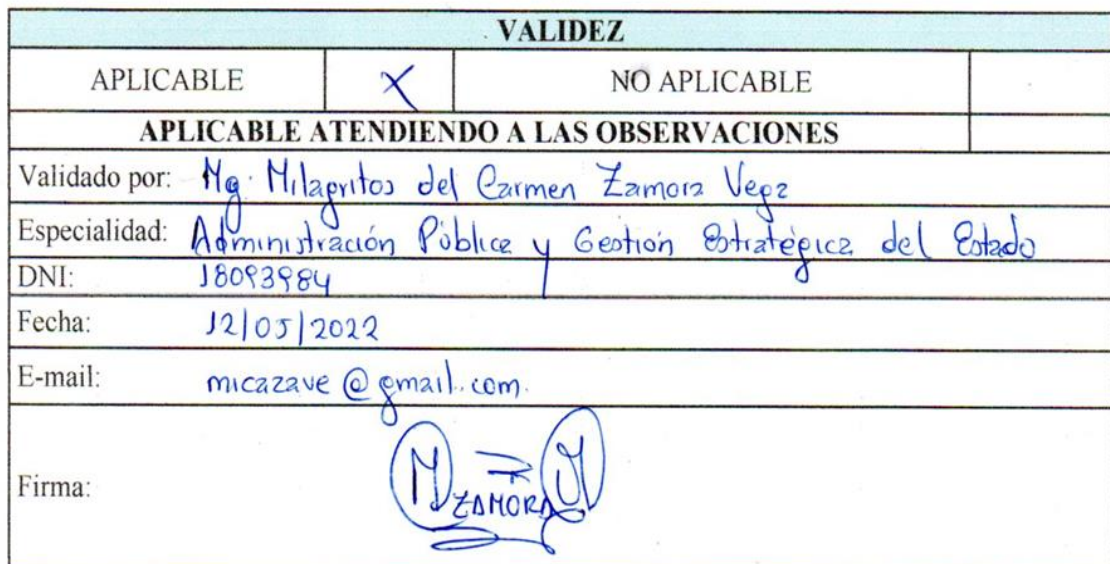 VALIDEZ
APLICABLE X NO APLICABLE
APLICABLE ATENDIENDO A LAS OBSERVACIONES
Validado por: Mg. Milagritos del Carmen Zamora Vega
Especialidad: Administración Pública y Gestión Estratégica del Estado
DNI: 18093984
Fecha: 12/05/2022
E-mail: micazave@gmail.com.
Firma: ZAMORA